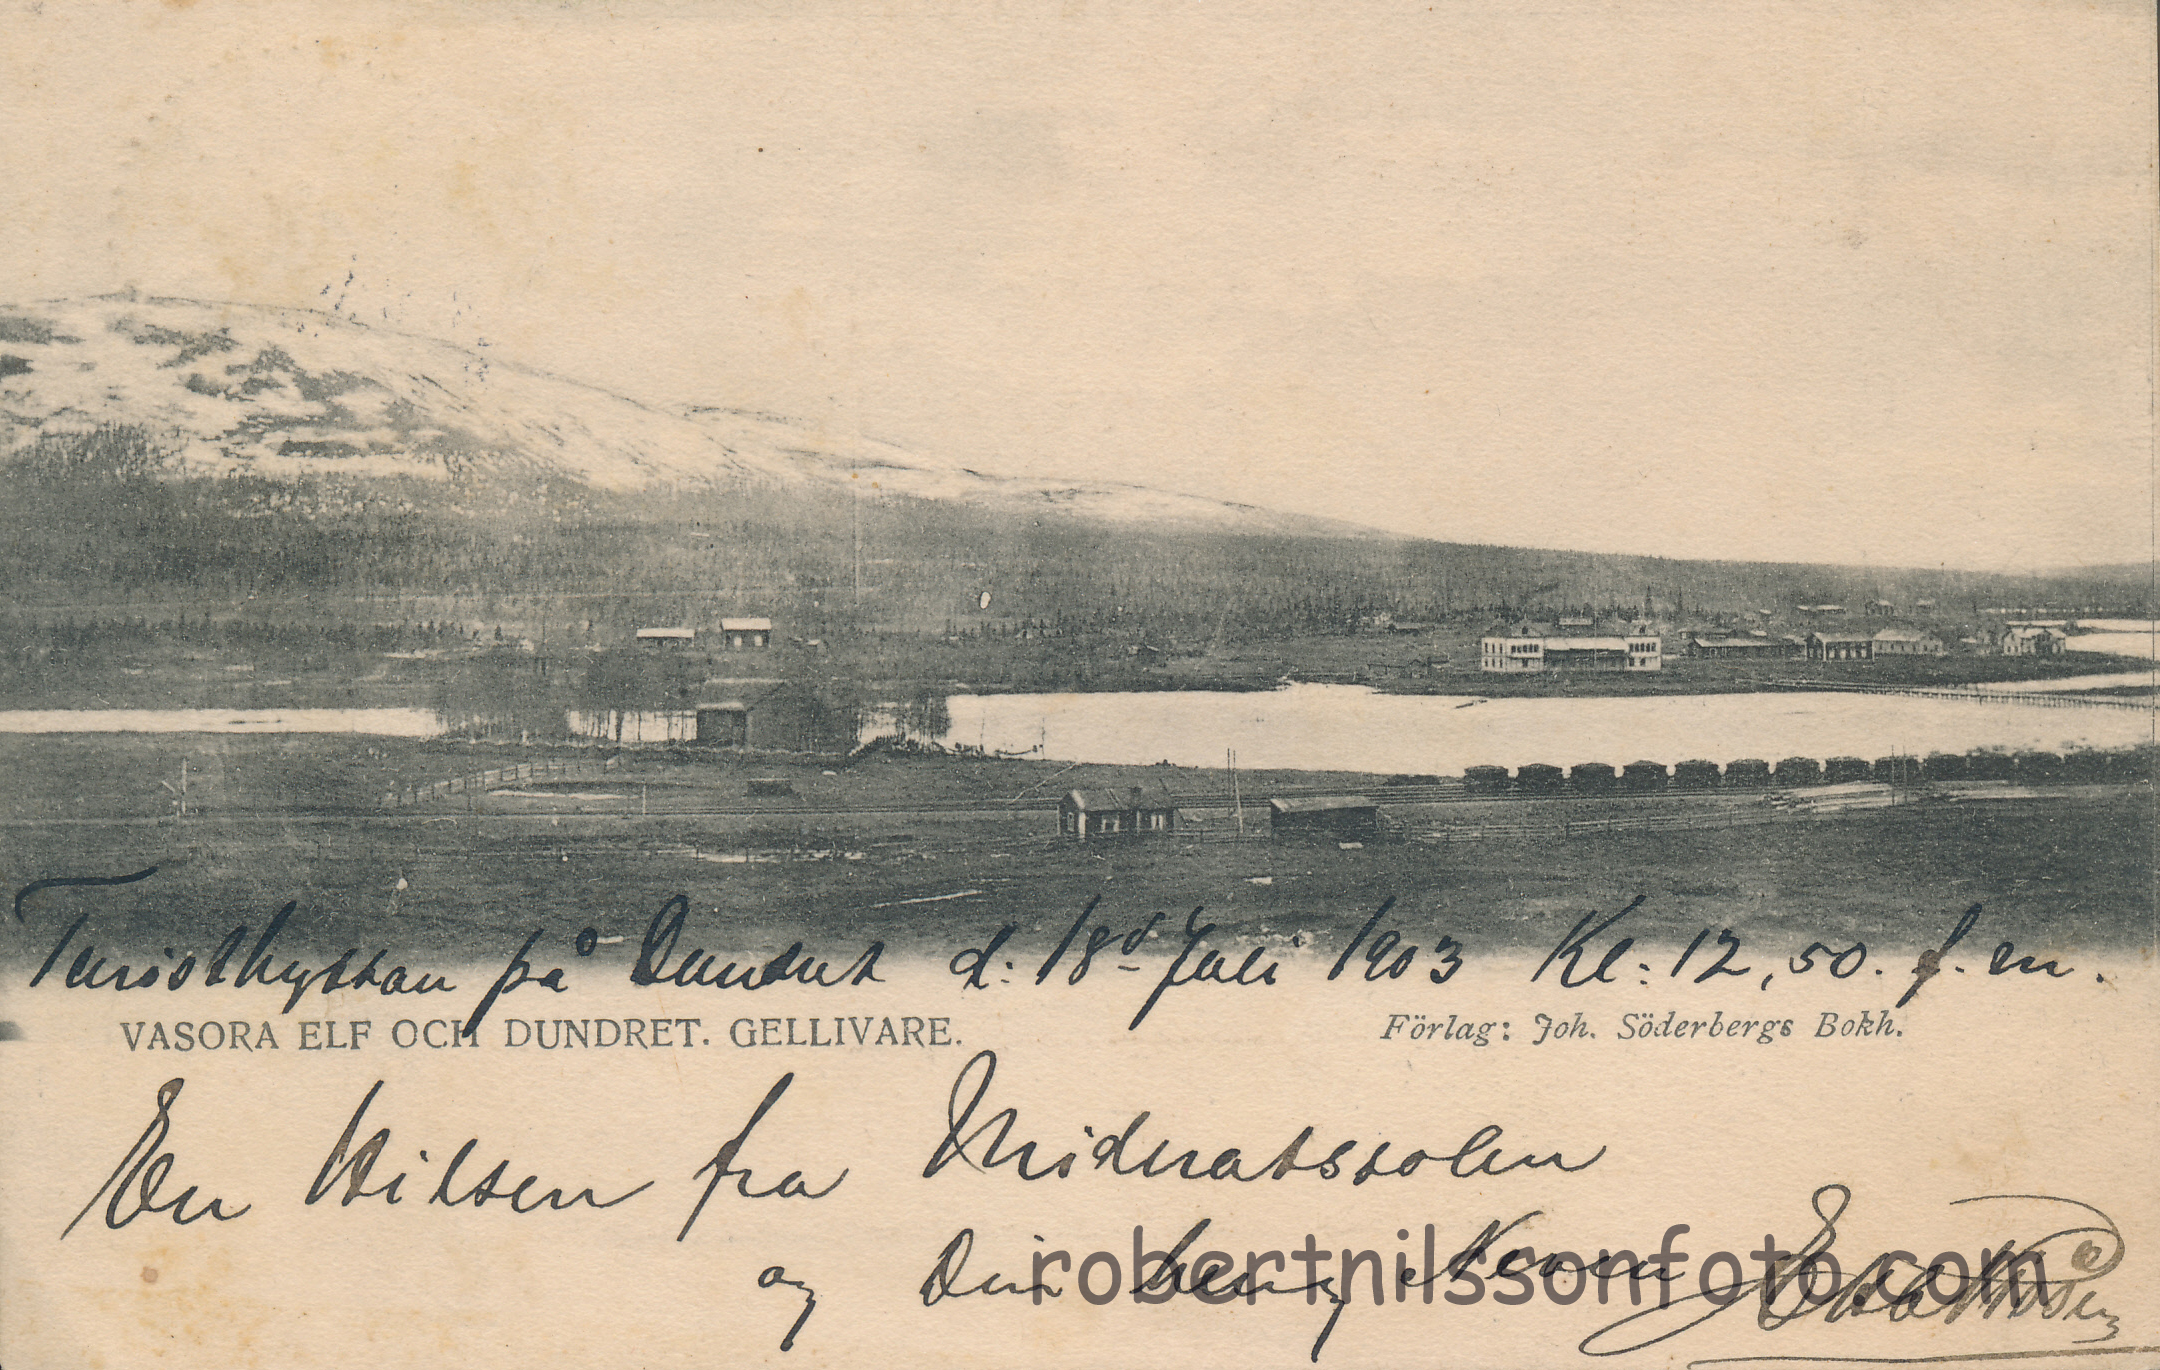 Turisthyttan på Dundret d: 18d Juli 1903 Kl: 12,50. f. m.
VASORA ELF OCH DUNDRET. GELLIVARE.
Förlag: Joh. Söderbergs Bokh.
En Hilsen fra Midnatssolen
og Din
robertnilssonfoto.com